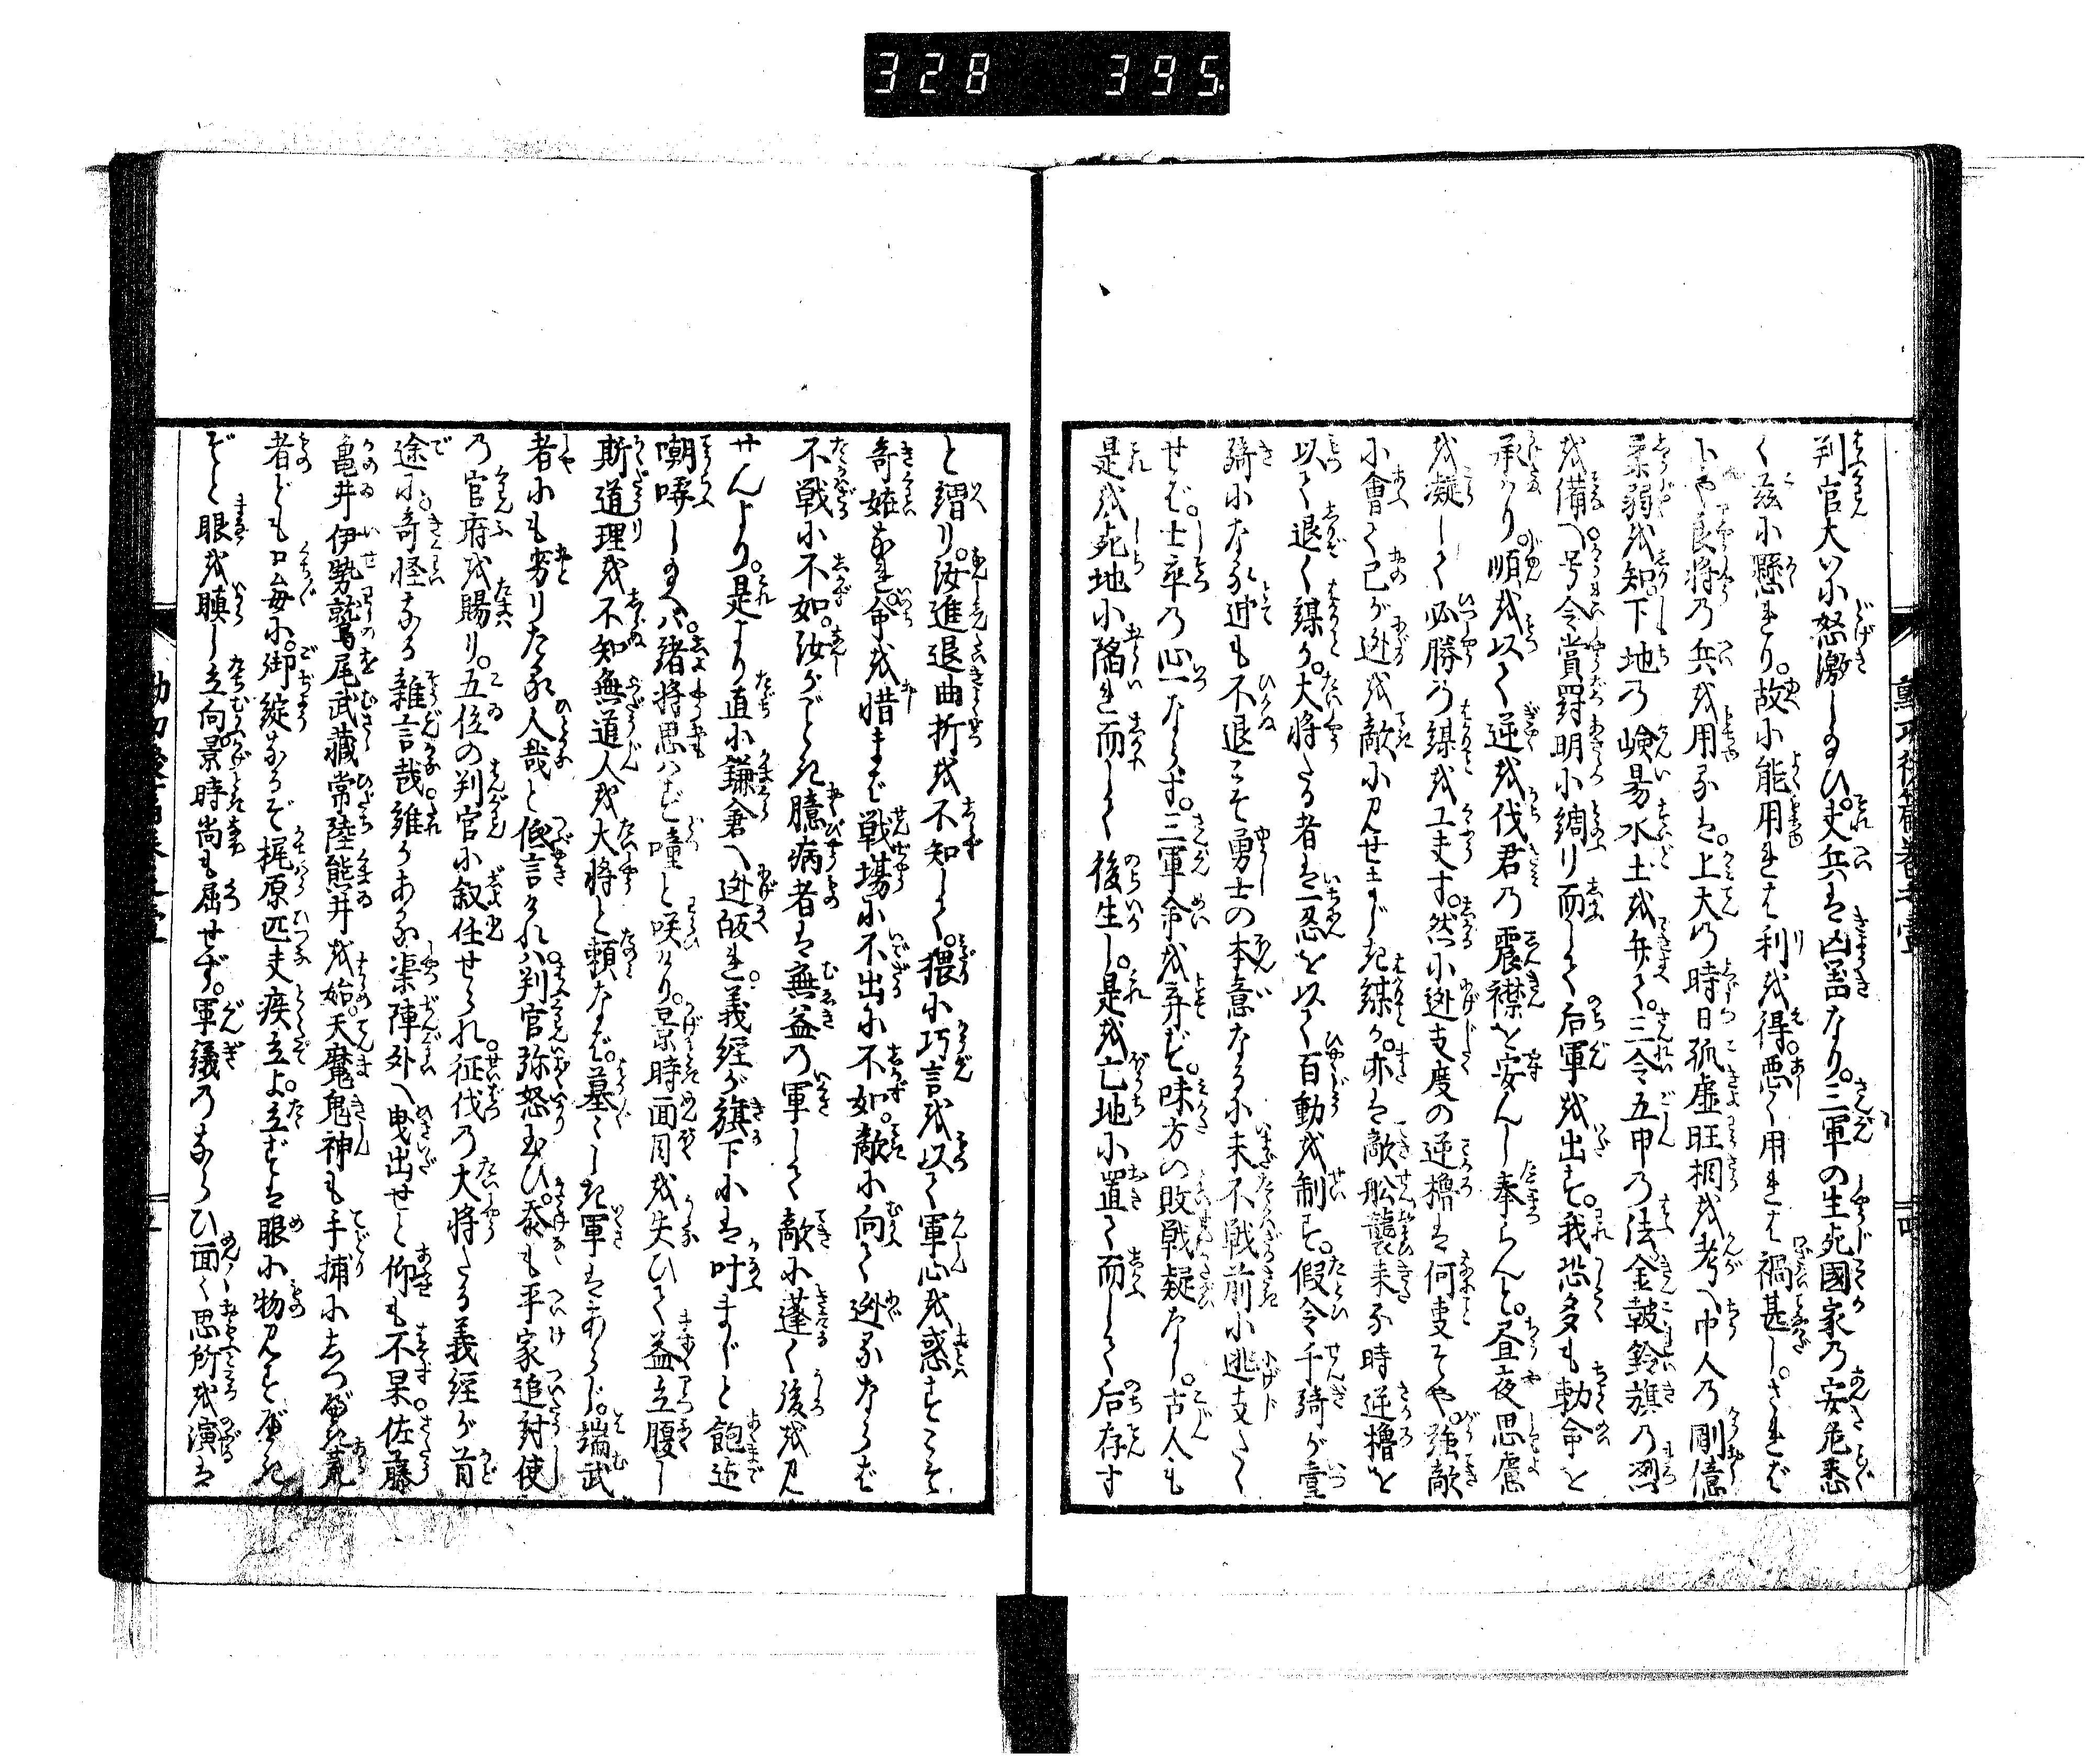 328 395
判官大いに怒激し玉ひ。夫兵は凶器なり。三軍の生死國家の安危悉
く茲に懸れり。故に能用れは利を得。悪く用れは禍甚し。されば
良将の兵を用るは。上天の時日孤虚旺相を考へ中人の剛臆
柔弱を知。下地の嶮易水土を弁て。三令五申の法金皷鈴旗の
を備へ号令賞罸明に綢り而して后軍を出す。我恐多も勅命と
承はり。順を以て逆を伐君の震襟を安んし奉らんと。昼夜思慮
を凝して必勝の謀を工夫す。然に迯支度の逆櫓は何事ぞや。強敵
に會て己が迯を敵に見せまじき謀か。亦は敵舩襲来る時逆櫓を
以て退く謀か。大将たる者は一忍を以て百動を制す。假令千騎が壹
騎になる迚も不退こそ勇士の本意なるに未不戦前に迯支たく
せば。士卒の心一ならず。三軍命を弃ず。味方の敗戦疑なし。古人も
是を死地に陥れ而して後生し。是を亡地に置て而して后存す
と謂り。汝進退曲折を不知して。猥に巧言を以て軍心を惑すこそ
奇怪なれ。命を惜まば戦場に不出に不如。敵に向て迯るならば
不戦に不如。汝がごとき臆病者は無益の軍して敵に蓬て後を見
せんより。是より直に鎌倉へ迯皈れ。義經が旗下には叶まじと飽迠
嘲哢し玉へバ。諸将思はず瞳と咲けり。景時面目を失ひて益立腹し
斯道理を不知無道人を大将と頼なば。墓〻しき軍はあらじ。端武
者にも劣りたる人哉と低言けれバ判官弥怒玉ひ。忝も平家追討使
の官府を賜り。五位の判官に叙任せられ。征伐の大将たる義經が首
途に奇怪なる雜言哉。誰かある渠陣外へ曳出せと仰も不果。佐藤
亀井伊勢鷲尾武藏常陸熊井を始。天魔鬼神も手捕にしつべき荒
者ども口〻毎に。御綻なるぞ梶原匹夫疾立よ。立ずは眼に物見すべき
ぞと眼を瞋し立向。景時尚も屈せず。軍議のならひ面〻思所を演は